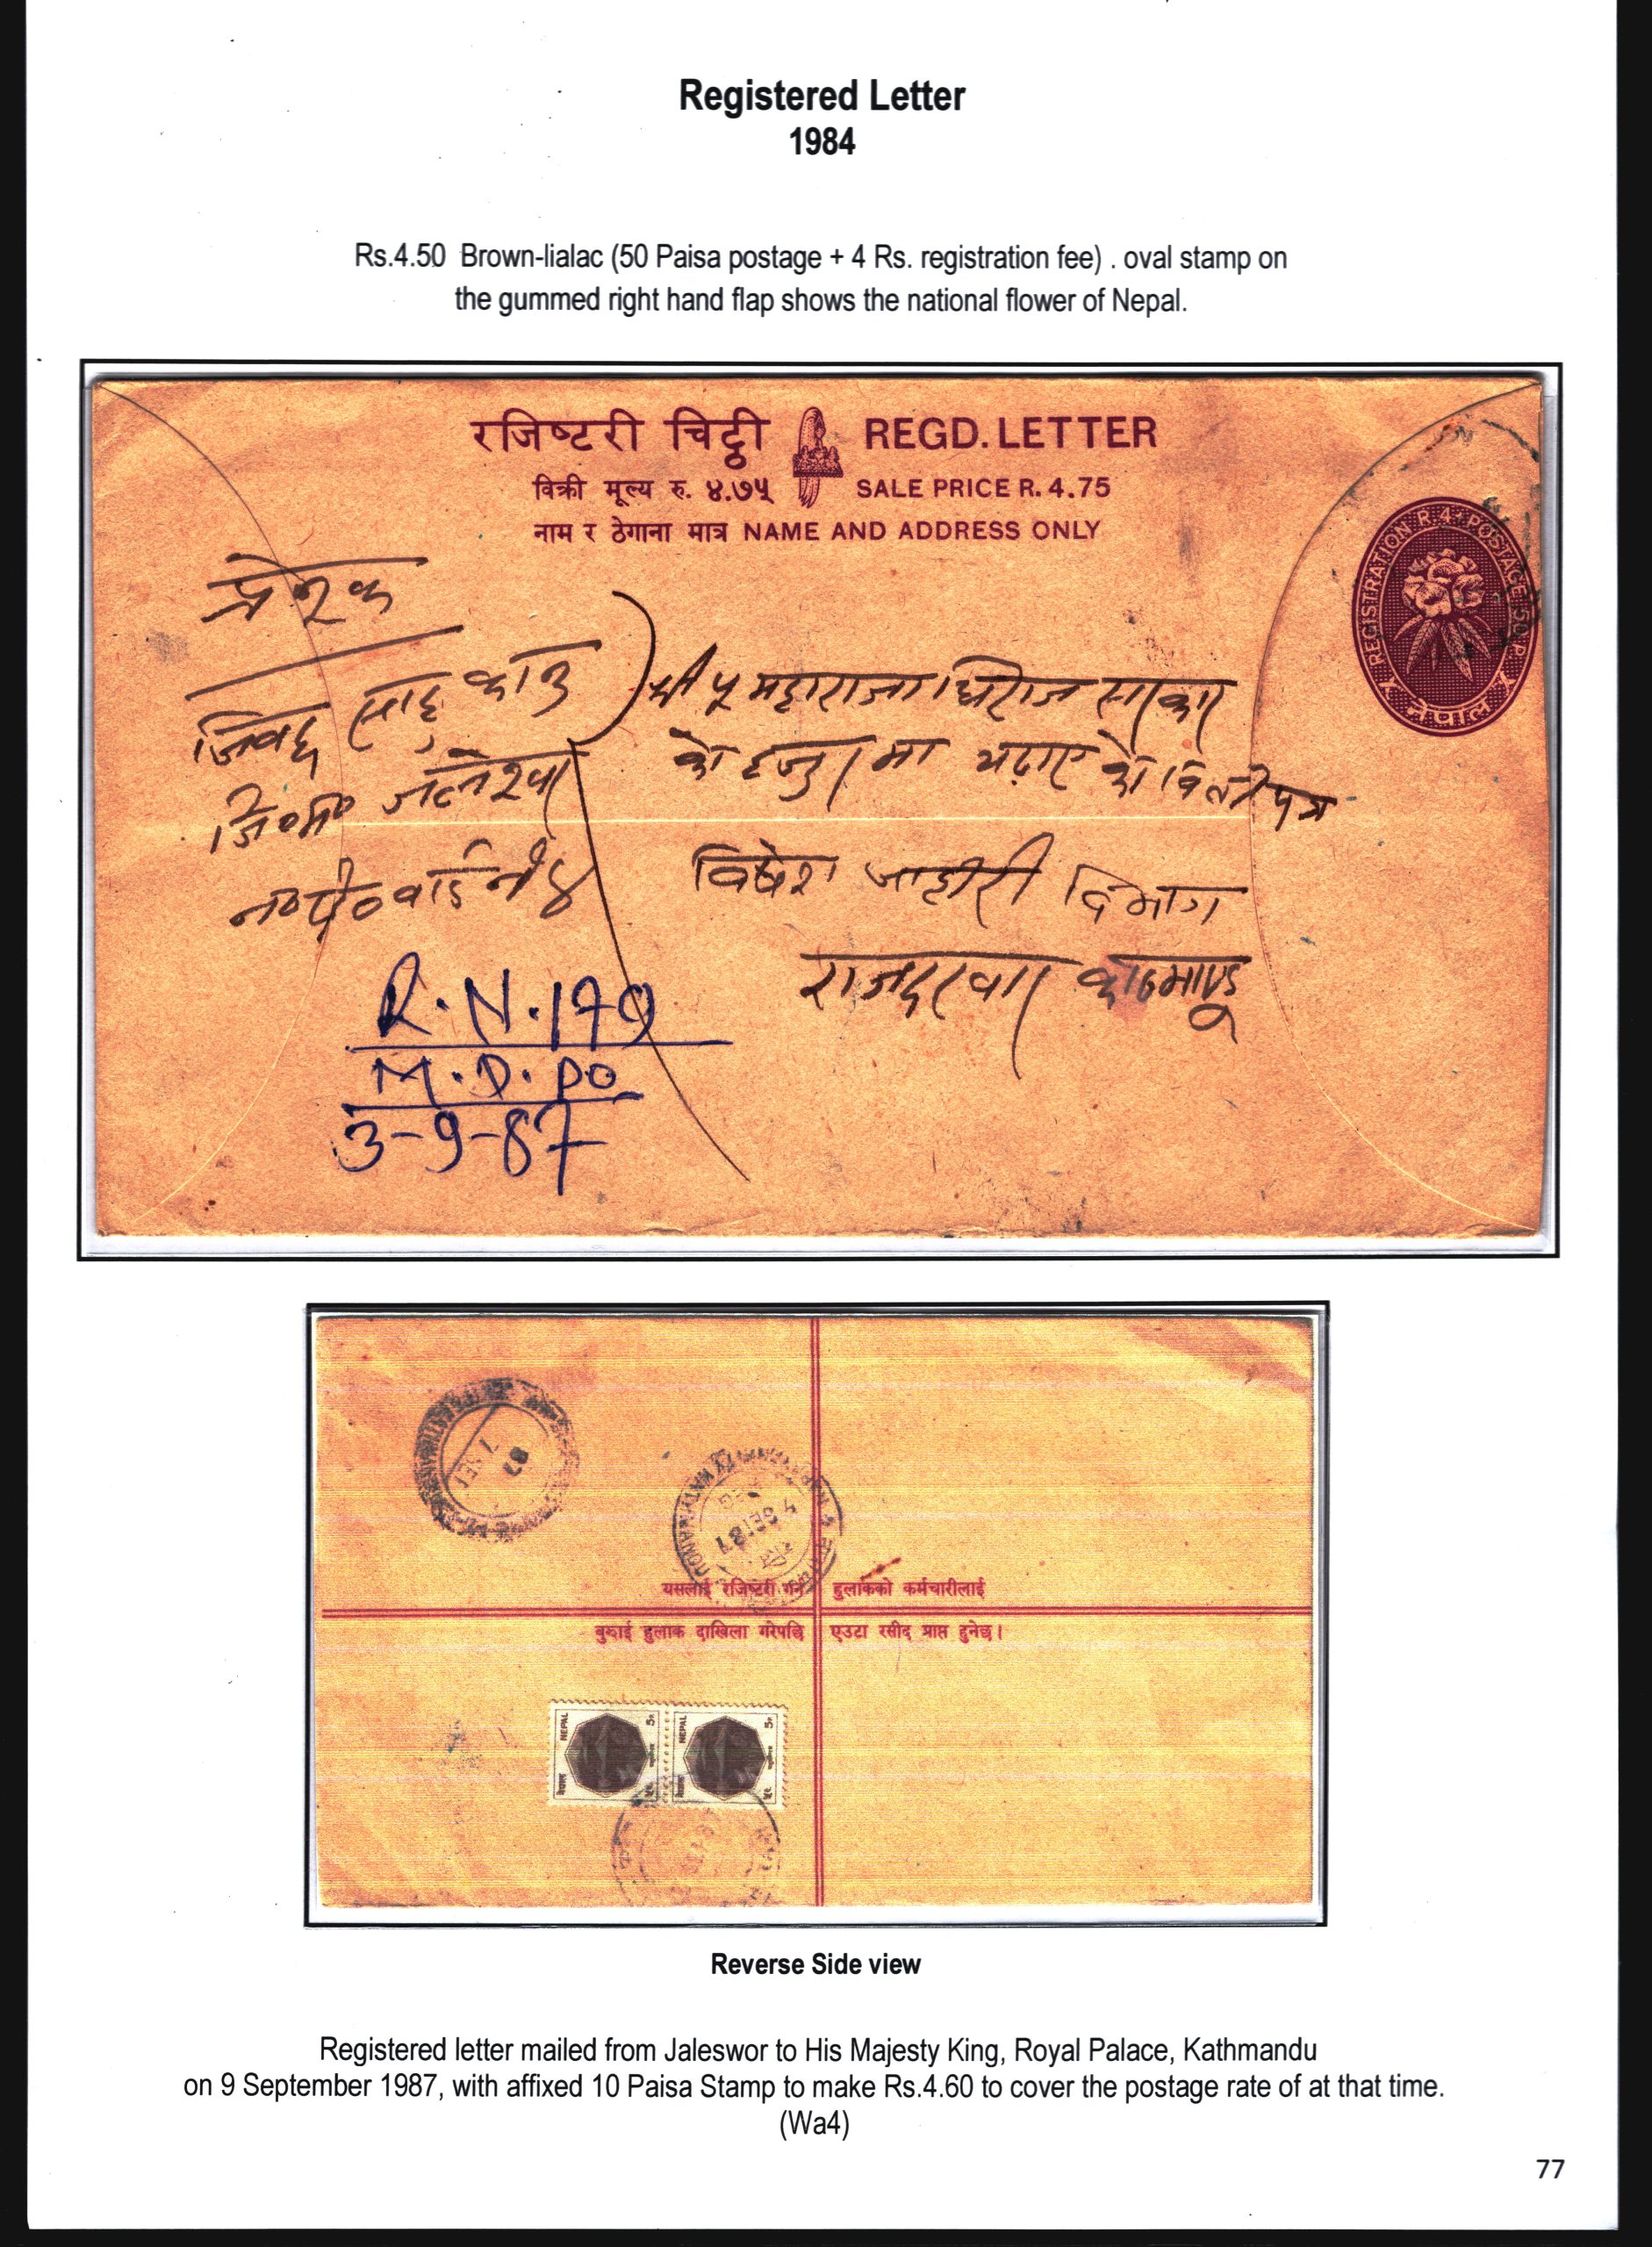 Registered Letter
1984
Rs.4.50 Brown-lialac (50 Paisa postage + 4 Rs. registration fee) . oval stamp on
the gummed right hand flap shows the national flower of Nepal.
रजिष्टरी चिट्ठी REGD. LETTER
विक्री मूल्य रु. ४.७५ SALE PRICE R. 4.75
नाम र ठेगाना मात्र NAME AND ADDRESS ONLY
REGISTRATION R 4. POSTAGE 50 P
नेपाल
प्रेषक
साहु कानु
जलेश्वर
न०पं० वार्ड नं ४
श्री ५ महाराजाधिराज सरकार
को हजुरमा चढाएको विन्तीपत्र
विशेष जाहेरी विभाग
राजदरवार काठमाण्डू
R.N. 179
M.D. PO
3-9-87
7 SEP 87
यसलाई रजिष्टरी गर्न हुलाकको कर्मचारीलाई
बुझाई हुलाक दाखिला गरेपछि एउटा रसीद प्राप्त हुनेछ।
नेपाल NEPAL 5P
नेपाल NEPAL 5P
Reverse Side view
Registered letter mailed from Jaleswor to His Majesty King, Royal Palace, Kathmandu
on 9 September 1987, with affixed 10 Paisa Stamp to make Rs.4.60 to cover the postage rate of at that time.
(Wa4)
77